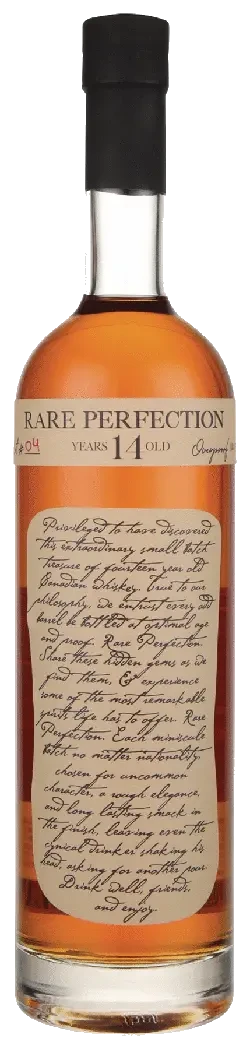 RARE PERFECTION
# 04
YEARS 14 OLD
Overproof
Privileged to have discovered
this extraordinary small batch
treasure of fourteen year old
Canadian whiskey. True to our
philosophy, we entrust every odd
barrel be bottled at optimal age
and proof. Rare Perfection.
Share these hidden gems as we
find them, & experience
some of the most remarkable
spirits life has to offer. Rare
Perfection. Each miniscule
batch no matter nationality
chosen for uncommon
character, a rough elegance,
and long lasting smack in
the finish, leaving even the
cynical drinker shaking his
head, asking for another pour
Drink well, friends,
and enjoy